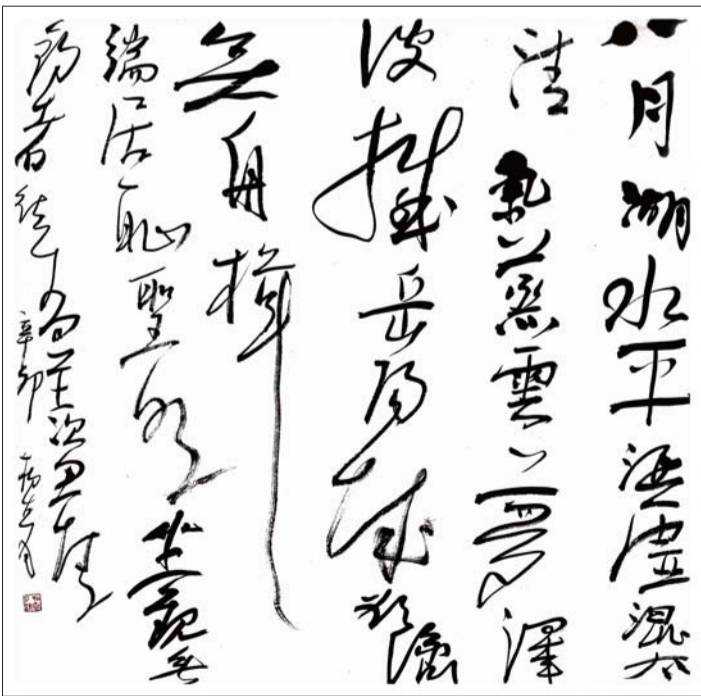 八月湖水平涵虚混太
清氣蒸雲夢澤
波撼岳陽城欲濟
無舟楫
端居恥聖明坐觀垂
釣者徒有羨魚情
辛卯